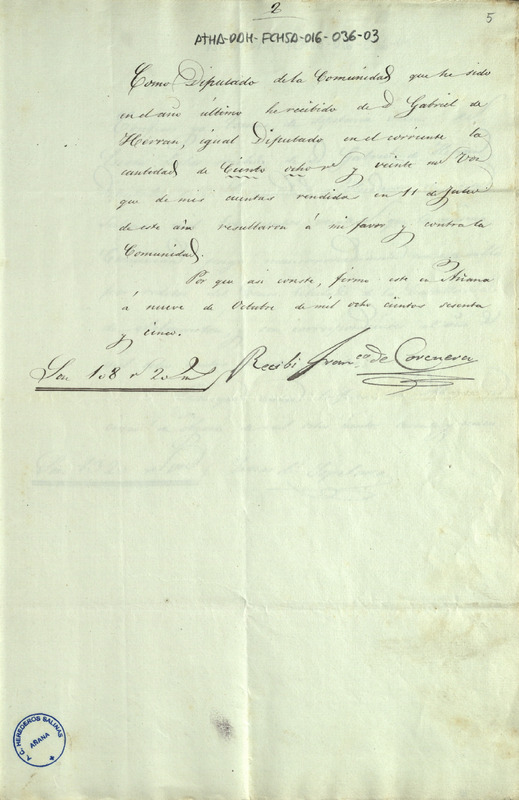 2
5
ATHA-DAH-FCHSA-016-036-03
Como Diputado de la Comunidad que he sido
en el año último he recibido de D Gabriel de
Herran, igual Diputado en el corriente la
cantidad de Ciento ocho rs y veinte ms von
que de mis cuentas rendidas en 11 de Julio
de este año resultaron á mi favor y contra la
Comunidad.
Por que asi conste, firmo este en Añana
á nueve de Octubre de mil ocho cientos sesenta
y cinco.
Son 108 rs 20 ms Recibi Franco de Corcuera
A. C. HEREDEROS SALINAS
AÑANA